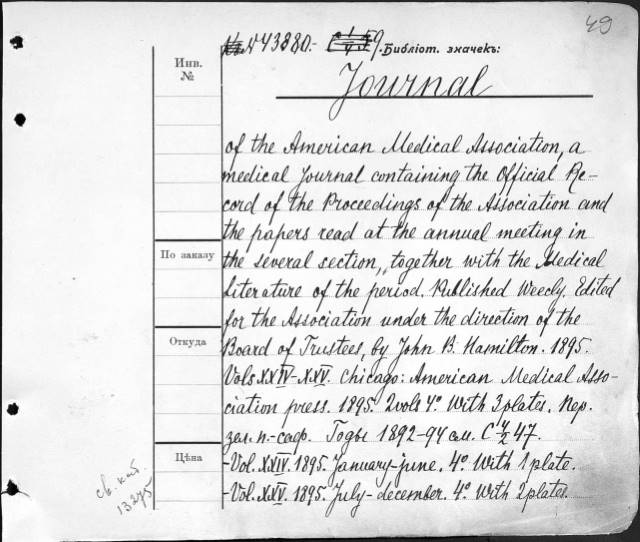 49
№ 43880.-
Библіот. значекъ:
Инв.
№
Journal
of the American Medical Association, a
medical Journal containing the Official Re-
cord of the Proceedings of the Association and
the papers read at the annual meeting in
По заказу
the several section, together with the Medical
Literature of the period. Published Weecly. Edited
for the Association under the direction of the
Откуда
Board of Trustees, by John B. Hamilton. 1895.
Vols XXIV-XXV. Chicago: American Medical Asso-
ciation press. 1895. 2 vols 4°. With 3 plates. Пер.
зел. п.-саф. Годы 1892-94 см. C 4/2 47.
Цѣна
-Vol. XXIV. 1895. January-june. 4° With 1 plate.
-Vol. XXV. 1895. July-december. 4° With 2 plates.
св. кат.
13275